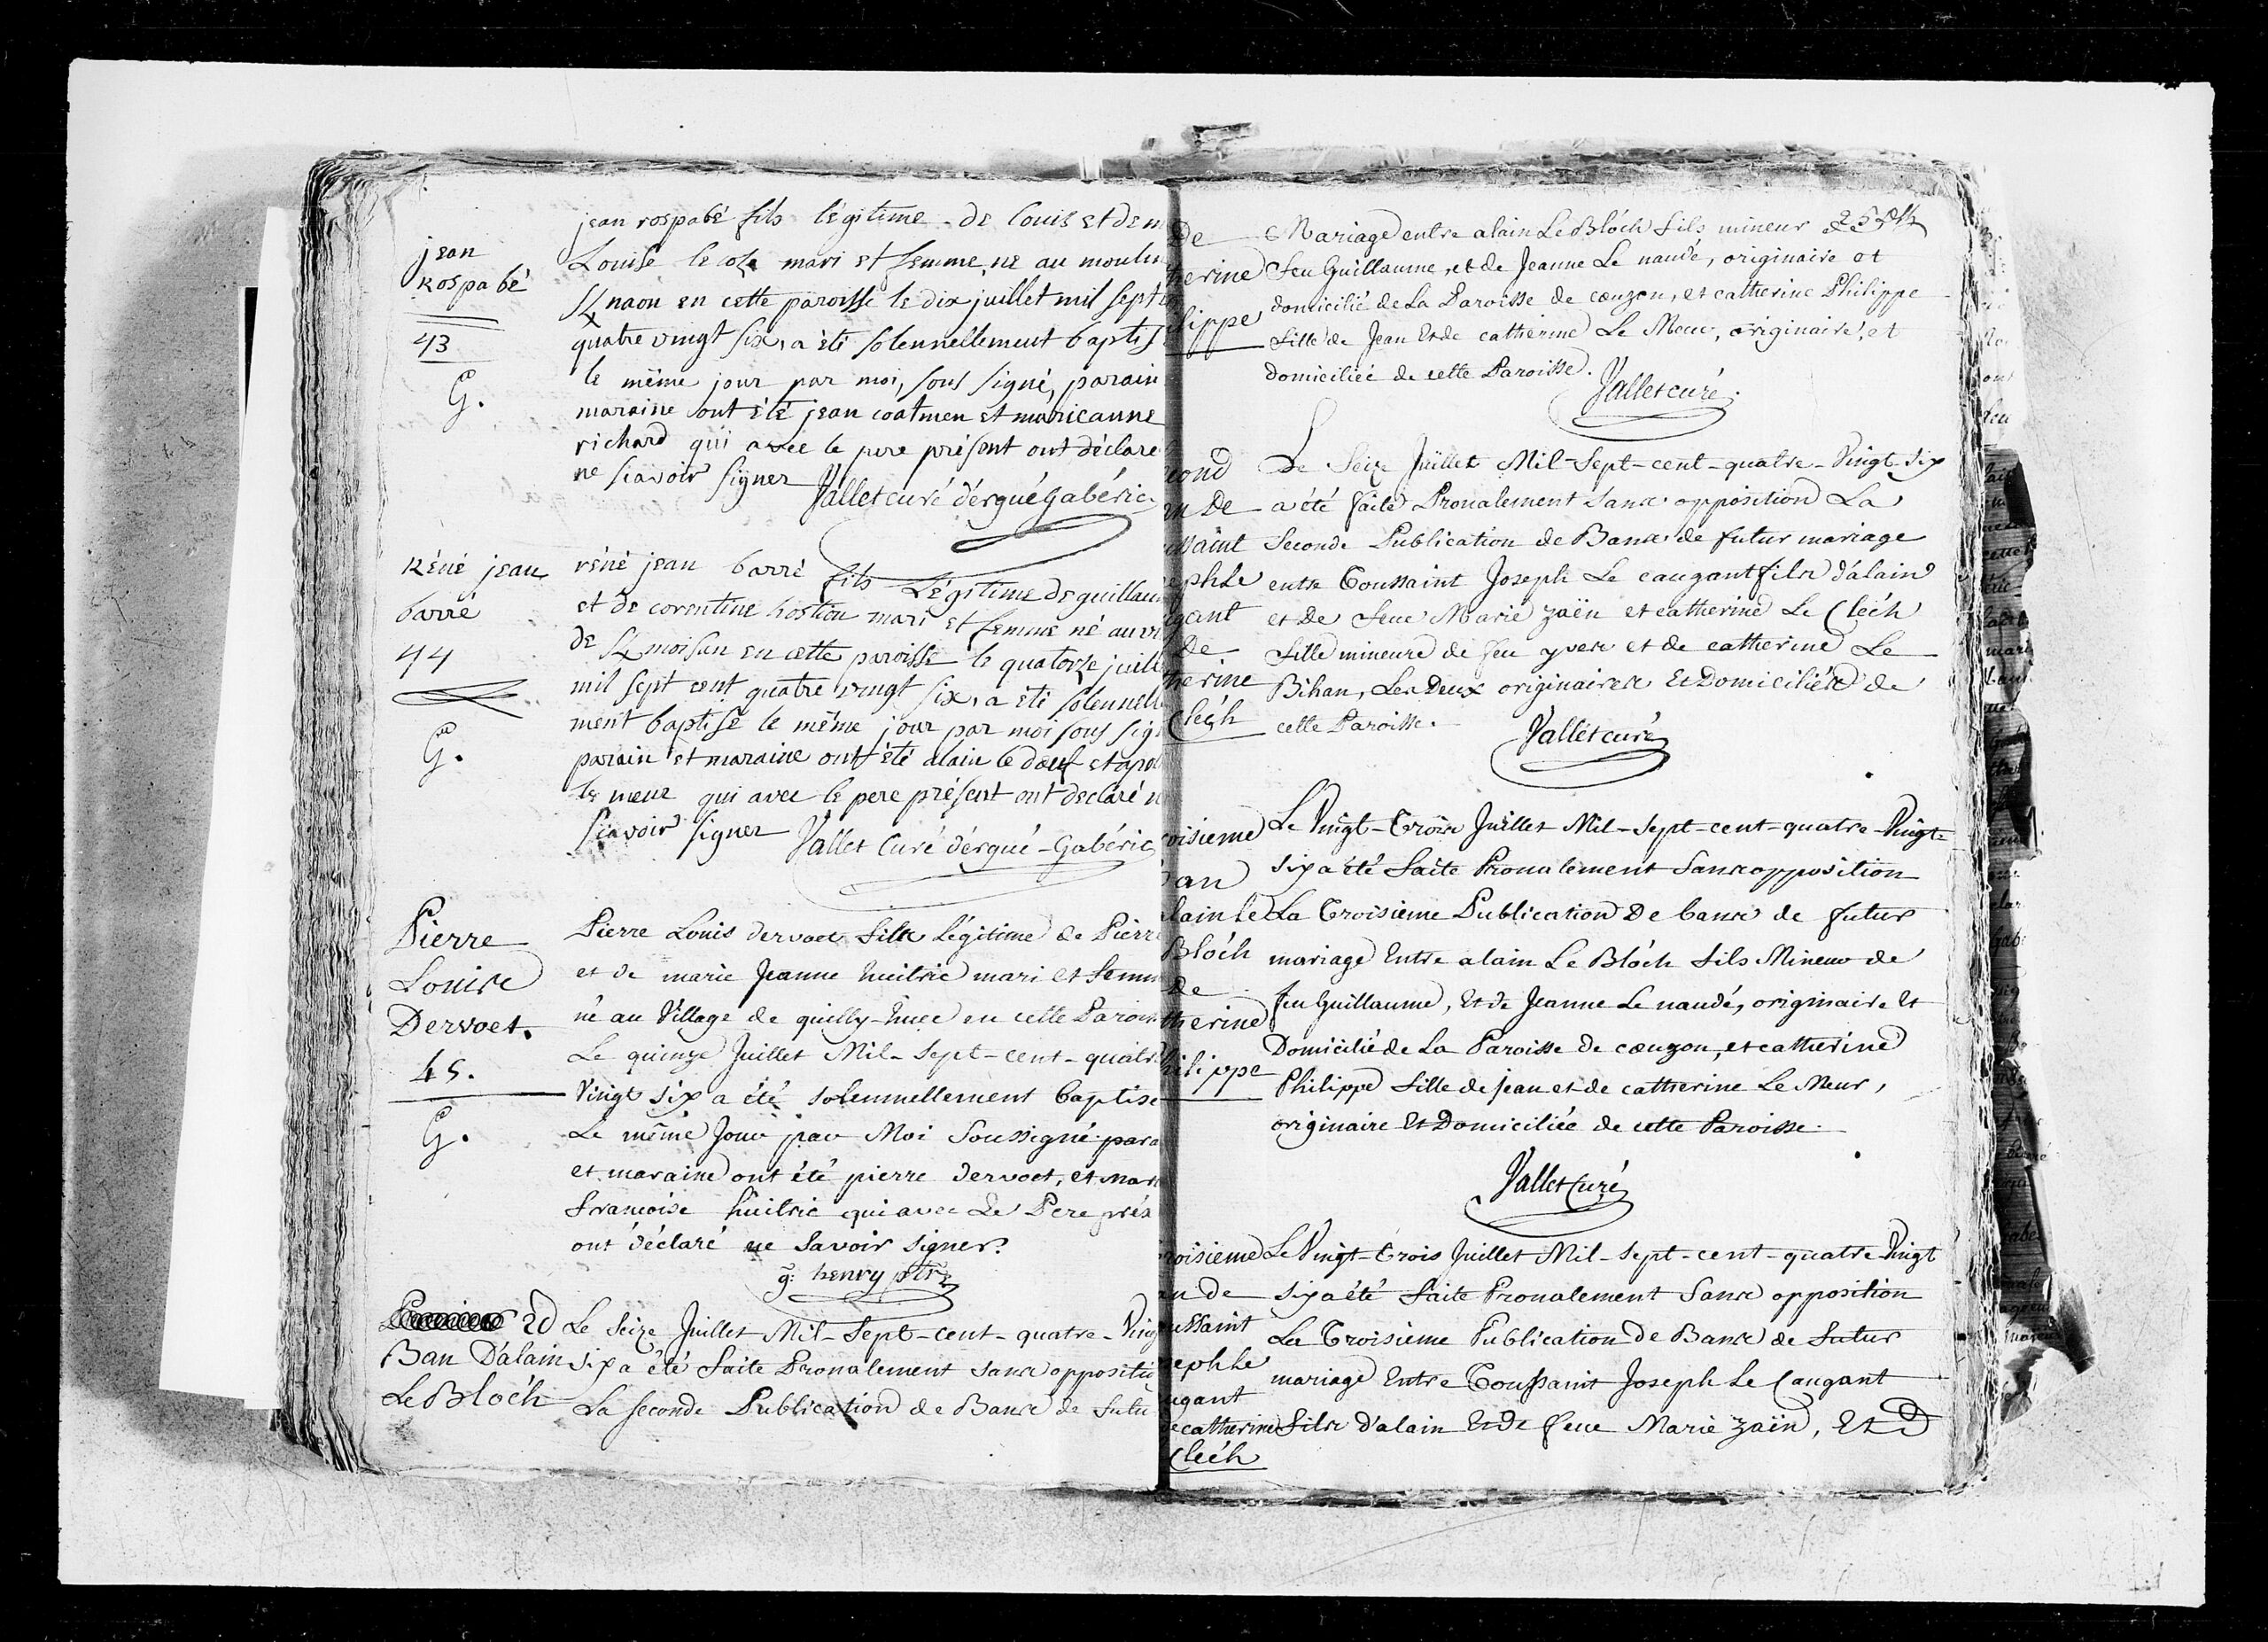 jean
Rospabé
43
G.
jean rospabé fils légitime de louis et de m
Louise le mari et femme, né au moulin
naon en cette paroisse le dix juillet mil sept
quatre vingt six, a été solennellement baptis
le même jour par moi, sous signé, parain
maraine ont été jean coatmen et marieanne
richard qui avec le pere présent ont déclaré
ne sçavoir signer Vallet curé d'ergué gabéric
Réné jean
barré
44
G.
réné jean barré fils légitime de guillau
et de corentine hostiou mari et femme né au vi
de moisan en cette paroisse le quatorze juill
mil sept cent quatre vingt six, a été solennell
ment baptisé le même jour par moi sous sig
parain et maraine ont été alain le dœuf et
le meur qui avec le pere présent ont declaré n
sçavoir signer Vallet Curé d'ergué-Gabéric
Pierre
Louis
Dervoet.
45.
G.
Pierre Louis dervoet fils Légitime de Pierre
et de marie Jeanne huitric mari et femm
né au Village de quilly-huec en cette Parois
Le quinze Juillet Mil-Sept-cent-quatre
Vingt Six a été solemnellement Baptisé
Le même Jour par Moi Soussigné para
et maraine ont été pierre dervoet, et mar
françoise huitric qui avec Le Pere prés
ont déclaré ne Savoir signer.
g: henry ptre
2d
Ban D'alain
Le Bloc'h
Le Seize Juillet Mil-Sept-cent-quatre-Ving
six a été faite Pronalement sans oppositio
La seconde Publication de Bans de futu
De
herine
lippe
Mariage entre alain Le Bloc'h fils mineur de
feu Guillaume, et de Jeanne Le naudé, originaire et
domicilié de La Paroisse de cœuzon, et catherine Philippe
fille de Jean Et de catherine Le Meur, originaire, et
domiciliée de cette Paroisse.
Vallet curé.
cond
n De
ussaint
eph Le
gant
de
herine
Cléc'h
Le Seize Juillet Mil-Sept-cent-quatre-Vingt-Six
a été faite Pronalement Sans opposition La
Seconde Publication de Bans de futur mariage
entre Toussaint Joseph Le caugant fils d'alain
et De feue Marie zaën et catherine Le Cléc'h
fille mineure de feu yves et de catherine Le
Bihan, Les Deux originaires Et Domiciliés de
cette Paroisse.
Vallet curé
oisieme
an
lain le
Bloc'h
De
therine
hilippe
Le Vingt-Trois Juillet Mil-Sept-cent-quatre-Vingt-
six a été faite Pronalement Sans opposition
La Troisieme Publication De bans de futur
mariage Entre alain Le Bloc'h fils Mineur de
feu Guillaume, Et de Jeanne Le naudé, originaire Et
Domicilié de La Paroisse de cœuzon, et catherine
Philippe fille de jean et de catherine Le Meur,
originaire Et Domiciliée de cette Paroisse.
Vallet Curé
roisieme
n de
ussaint
seph Le
ugant
e catherine
Cléc'h
Le Vingt-Trois Juillet Mil-Sept-cent-quatre Vingt
six a été faite Pronalement Sans opposition
La Troisieme Publication de Bans de futur
mariage Entre Toussaint Joseph Le Caugant
fils d'alain Et De feue Marie zaïn, Et D